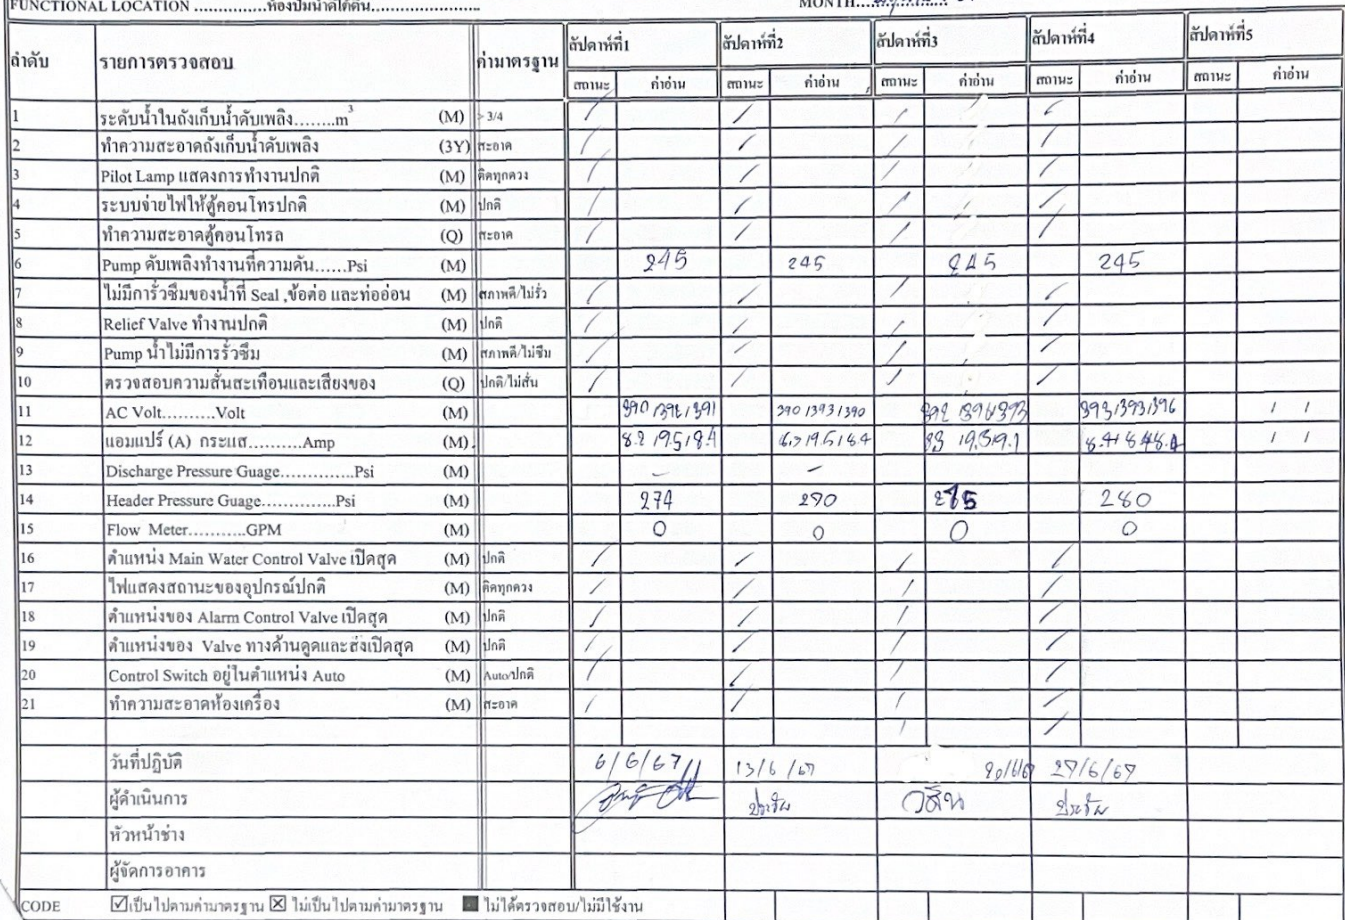 FUNCTIONAL LOCATION ...............ห้องปั๊มน้ำใต้ดิน........................ MONTH...
ลำดับ รายการตรวจสอบ ค่ามาตรฐาน สัปดาห์ที่1 สัปดาห์ที่2 สัปดาห์ที่3 สัปดาห์ที่4 สัปดาห์ที่5
สถานะ ค่าอ่าน สถานะ ค่าอ่าน สถานะ ค่าอ่าน สถานะ ค่าอ่าน สถานะ ค่าอ่าน
1 ระดับน้ำในถังเก็บน้ำดับเพลิง........m³ (M) > 3/4 / / / /
2 ทำความสะอาดถังเก็บน้ำดับเพลิง (3Y) สะอาด / / / /
3 Pilot Lamp แสดงการทำงานปกติ (M) ติดทุกดวง / / / /
4 ระบบจ่ายไฟให้ตู้คอนโทรปกติ (M) ปกติ / / / /
5 ทำความสะอาดตู้คอนโทรล (Q) สะอาด / / / /
6 Pump ดับเพลิงทำงานที่ความดัน......Psi (M) 245 245 245 245
7 ไม่มีการั่วซึมของน้ำที่ Seal ,ข้อต่อ และท่ออ่อน (M) สภาพดี/ไม่รั่ว / / / /
8 Relief Valve ทำงานปกติ (M) ปกติ / / / /
9 Pump น้ำไม่มีการรั่วซึม (M) สภาพดี/ไม่ซึม / / / /
10 ตรวจสอบความสั่นสะเทือนและเสียงของ (Q) ปกติ/ไม่สั่น / / / /
11 AC Volt..........Volt (M) 390/392/391 390/393/390 393/393/396 / /
12 แอมแปร์ (A) กระแส..........Amp (M) 8.2/9.5/8.4 8.4/8.4/8.4 / /
13 Discharge Pressure Guage..............Psi (M) - -
14 Header Pressure Guage..............Psi (M) 274 270 285 280
15 Flow Meter...........GPM (M) 0 0 0 0
16 ตำแหน่ง Main Water Control Valve เปิดสุด (M) ปกติ / / / /
17 ไฟแสดงสถานะของอุปกรณ์ปกติ (M) ติดทุกดวง / / / /
18 ตำแหน่งของ Alarm Control Valve เปิดสุด (M) ปกติ / / / /
19 ตำแหน่งของ Valve ทางด้านดูดและส่งเปิดสุด (M) ปกติ / / / /
20 Control Switch อยู่ในตำแหน่ง Auto (M) Auto/ปกติ / / / /
21 ทำความสะอาดห้องเครื่อง (M) สะอาด / / / /
/ /
วันที่ปฏิบัติ 6/6/67 13/6/67 20/6/67 27/6/67
ผู้ดำเนินการ วศิน
หัวหน้าช่าง
ผู้จัดการอาคาร
CODE ☑เป็นไปตามค่ามาตรฐาน ☒ ไม่เป็นไปตามค่ามาตรฐาน ■ ไม่ได้ตรวจสอบ/ไม่มีใช้งาน